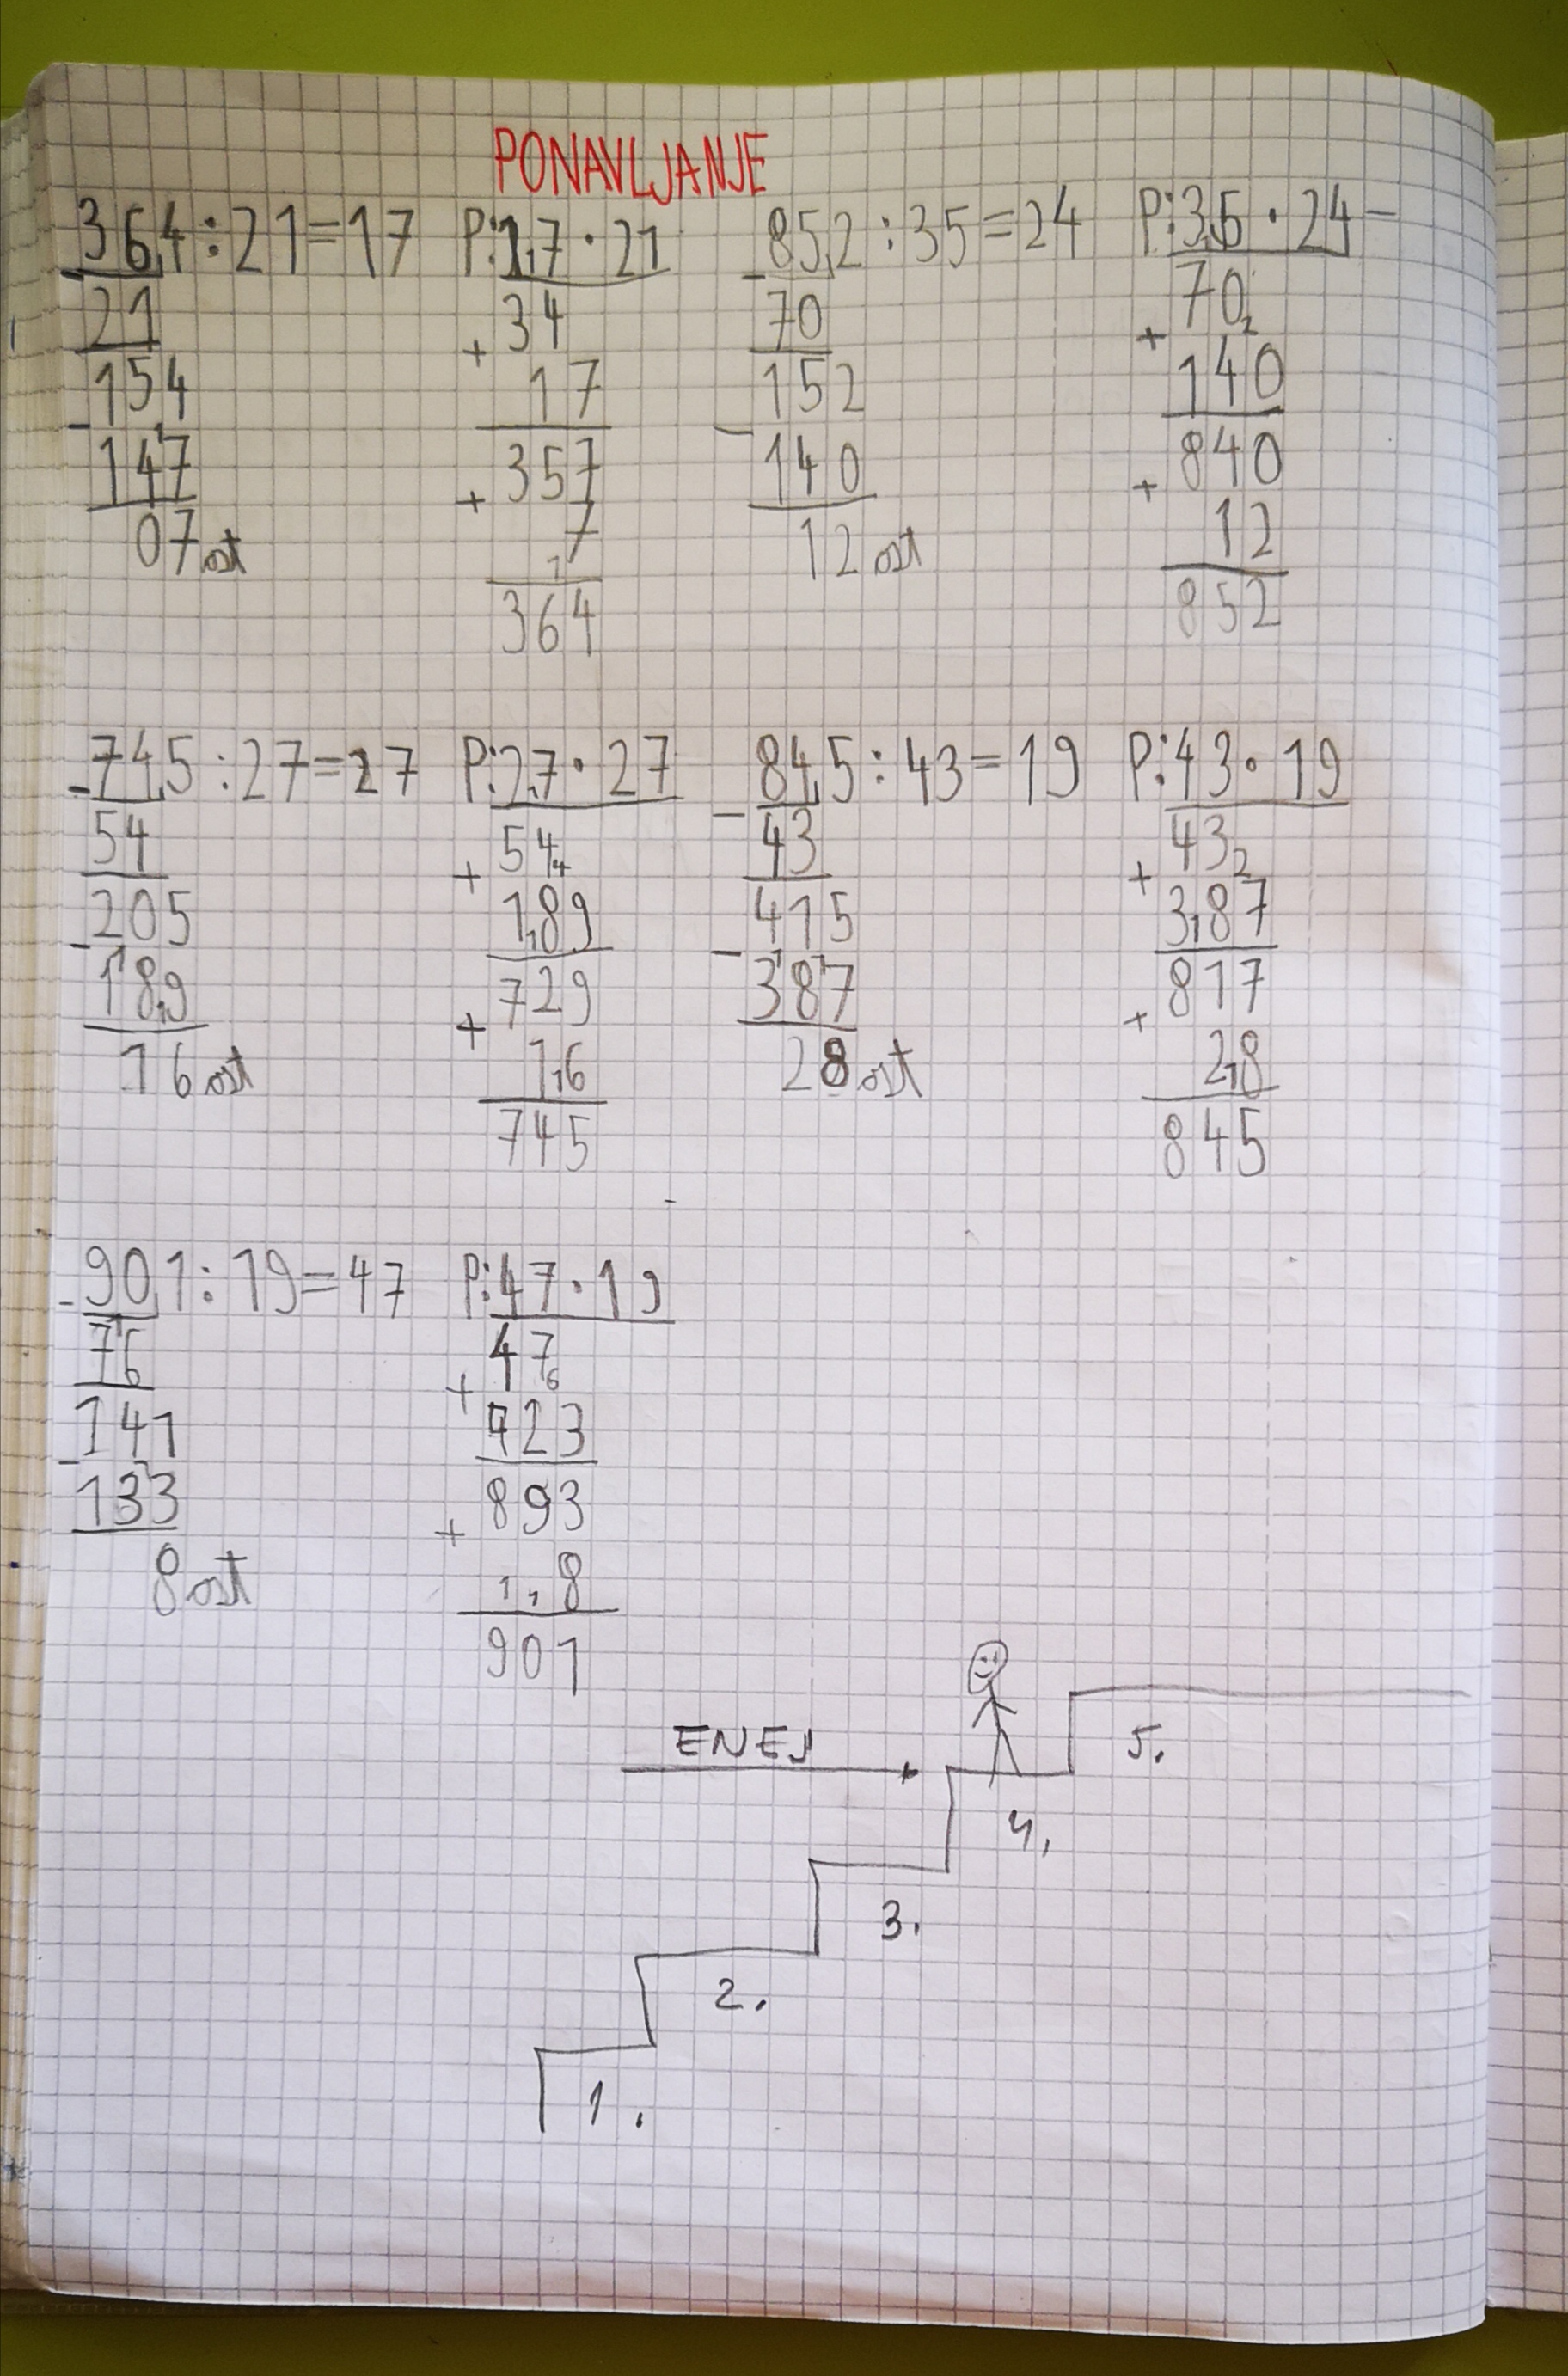 PONAVLJANJE
364:21=17 P:17·21 852:35=24 P:35·24
-21 +34 -70 +70
154 17 152 140
-147 357 -140 840
07 ost +7 12 ost +12
364 852
745:27=27 P:27·27 845:43=19 P:43·19
-54 +54 -43 +43
205 189 415 387
-189 729 -387 817
16 ost +16 28 ost +28
745 845
901:19=47 P:47·19
-76 +47
141 423
-133 893
8 ost +8
901
ENEJ
5.
4.
3.
2.
1.